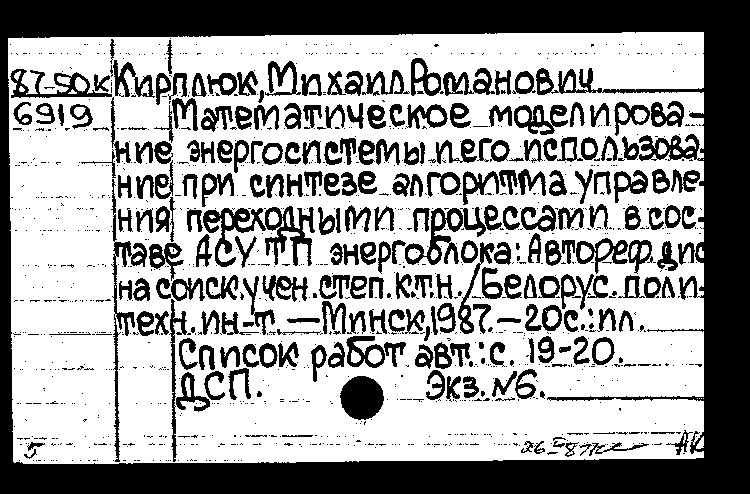 87-50к Кирплюк, Михаил Романович.
6919 Математическое моделирова-
ние энергосистемы и его использова-
ние при синтезе алгоритма управле-
ния переходными процессами в сос-
таве АСУ ТП энергоблока: Автореф. дис
на соиск. учен. степ. к.т.н. / Белорус. поли-
техн. ин-т. — Минск, 1987. — 20с.: ил.
Список работ авт.: с. 19-20.
ДСП. Экз. №6.
5 АК